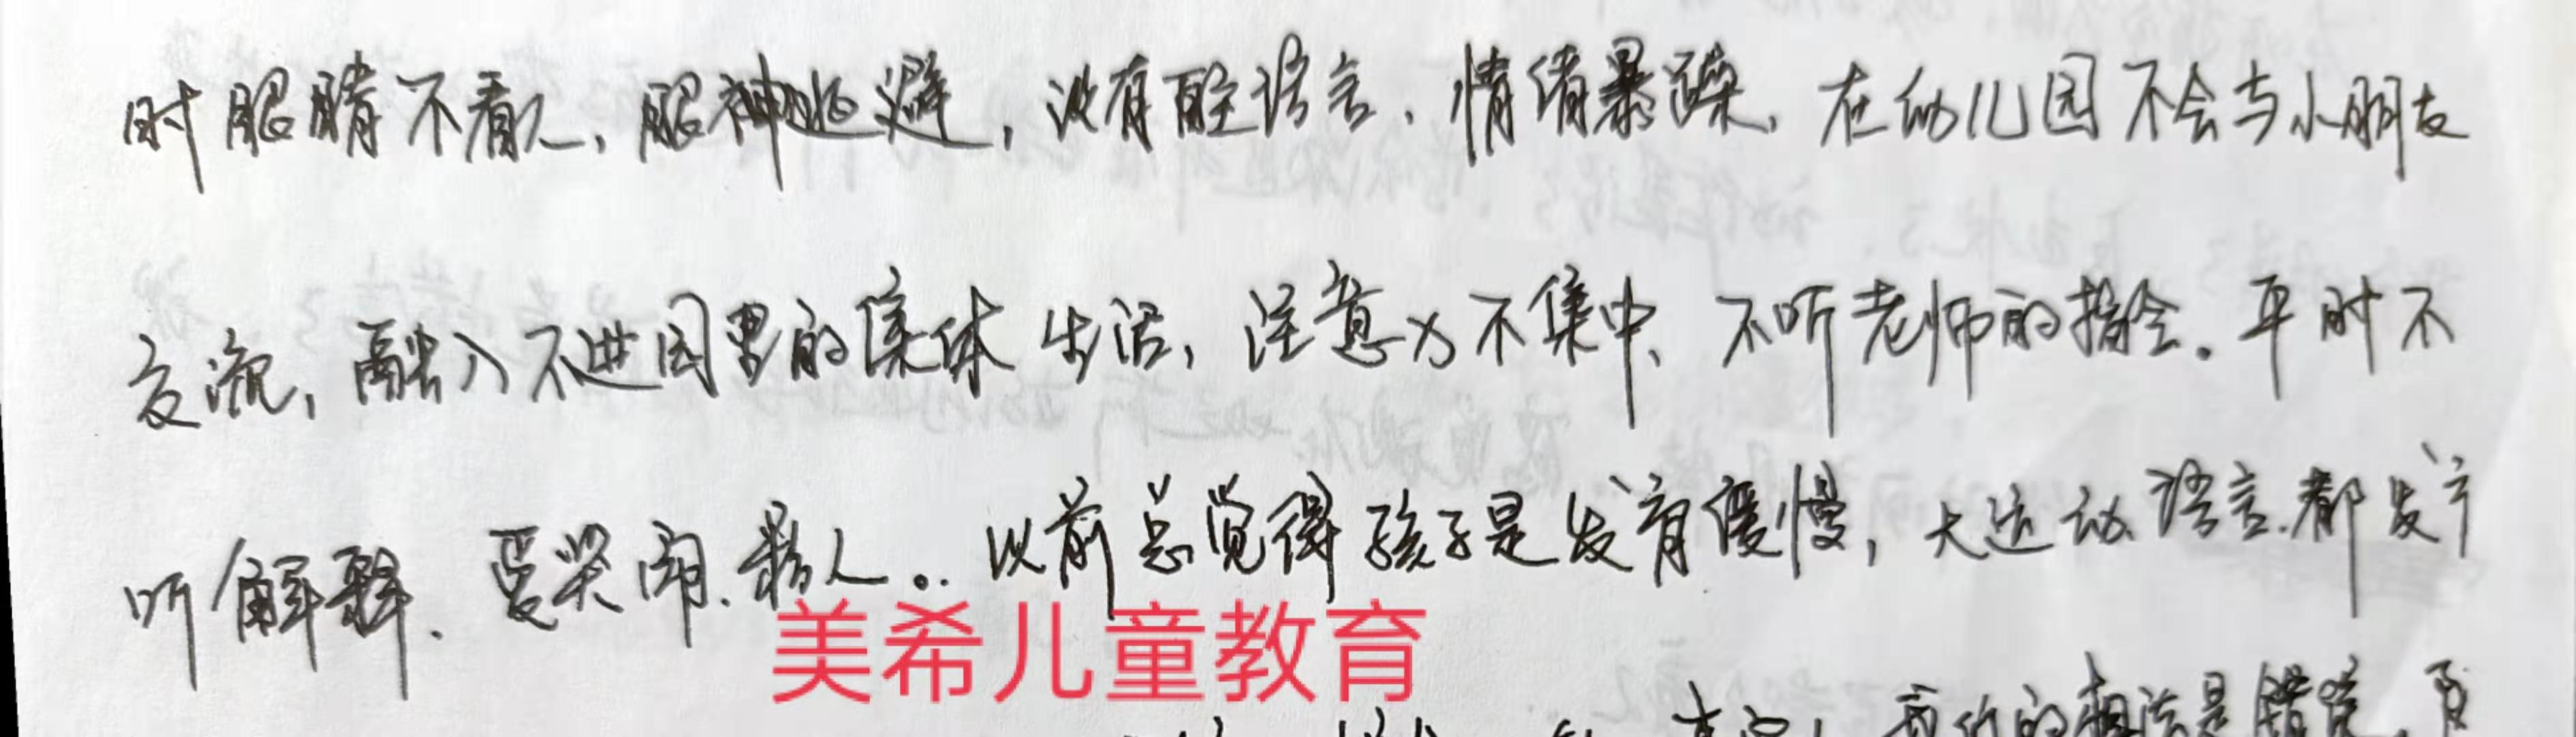 时眼睛不看人、眼神逃避，没有主语言、情绪暴躁、在幼儿园不会与小朋友
交流、融入不进园里的集体生活，注意力不集中、不听老师的指令。平时不
听解释、爱哭闹、黏人。以前总觉得孩子是发育缓慢，大运动、语言、都发育
美希儿童教育
我们的想法是错